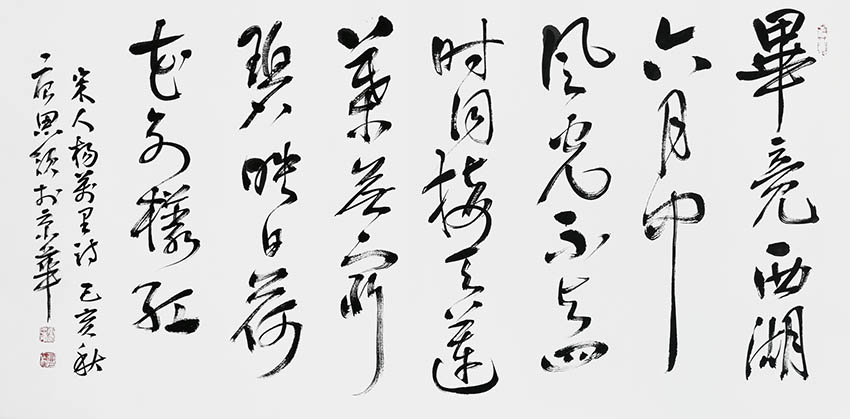 畢竟西湖
六月中
風光不與四
时同接天蓮
葉無窮
碧映日荷
花別樣紅
宋人楊萬里詩 己亥秋
思於京華